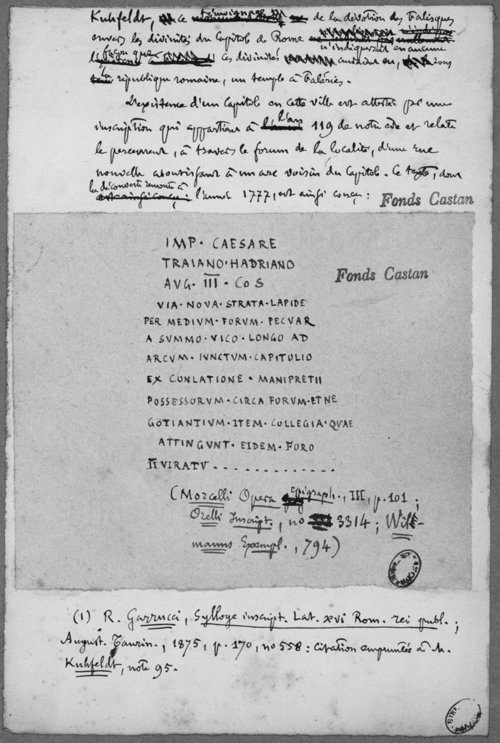 Kuhfeldt, ce témoignage de la dévotion des Falisques
envers les divinités du Capitole de Rome n'indiquerait en aucune
façon que ces divinités auraient eu, sous
république romaine, un temple à Faléries.
L'existence d'un Capitole en cette ville est attestée par une
inscription qui appartient à l'an 119 de notre ère et relate
le percement, à travers le forum de la localité, d'une rue
nouvelle aboutissant à un arc voisin du Capitole. Ce texte, dont
la découverte remonte à l'année 1777, est ainsi conçu :
Fonds Castan
IMP · CAESARE
TRAIANO · HADRIANO
AVG · III · COS
VIA · NOVA · STRATA · LAPIDE
PER MEDIVM · FORVM · PECVAR
A SVMMO · VICO · LONGO AD
ARCVM · IVNCTVM · CAPITOLIO
EX CONLATIONE · MANIPRETII
POSSESSORVM · CIRCA FORVM · ET NE
GOTIANTIVM · ITEM · COLLEGIA · QVAE
ATTINGVNT · EIDEM · FORO
IIVIRATV . . . . . . . . . . . . .
Fonds Castan
(Morcelli Opera epigraph., III, p. 101 ;
Orelli Inscript., no 3314 ; Wil-
manns Exempl., 794)
(1) R. Garrucci, Sylloge inscript. Lat. aevi Rom. rei publ. ;
August. Taurin., 1875, p. 170, no 558 : citation empruntée à M.
Kuhfeldt, note 95.